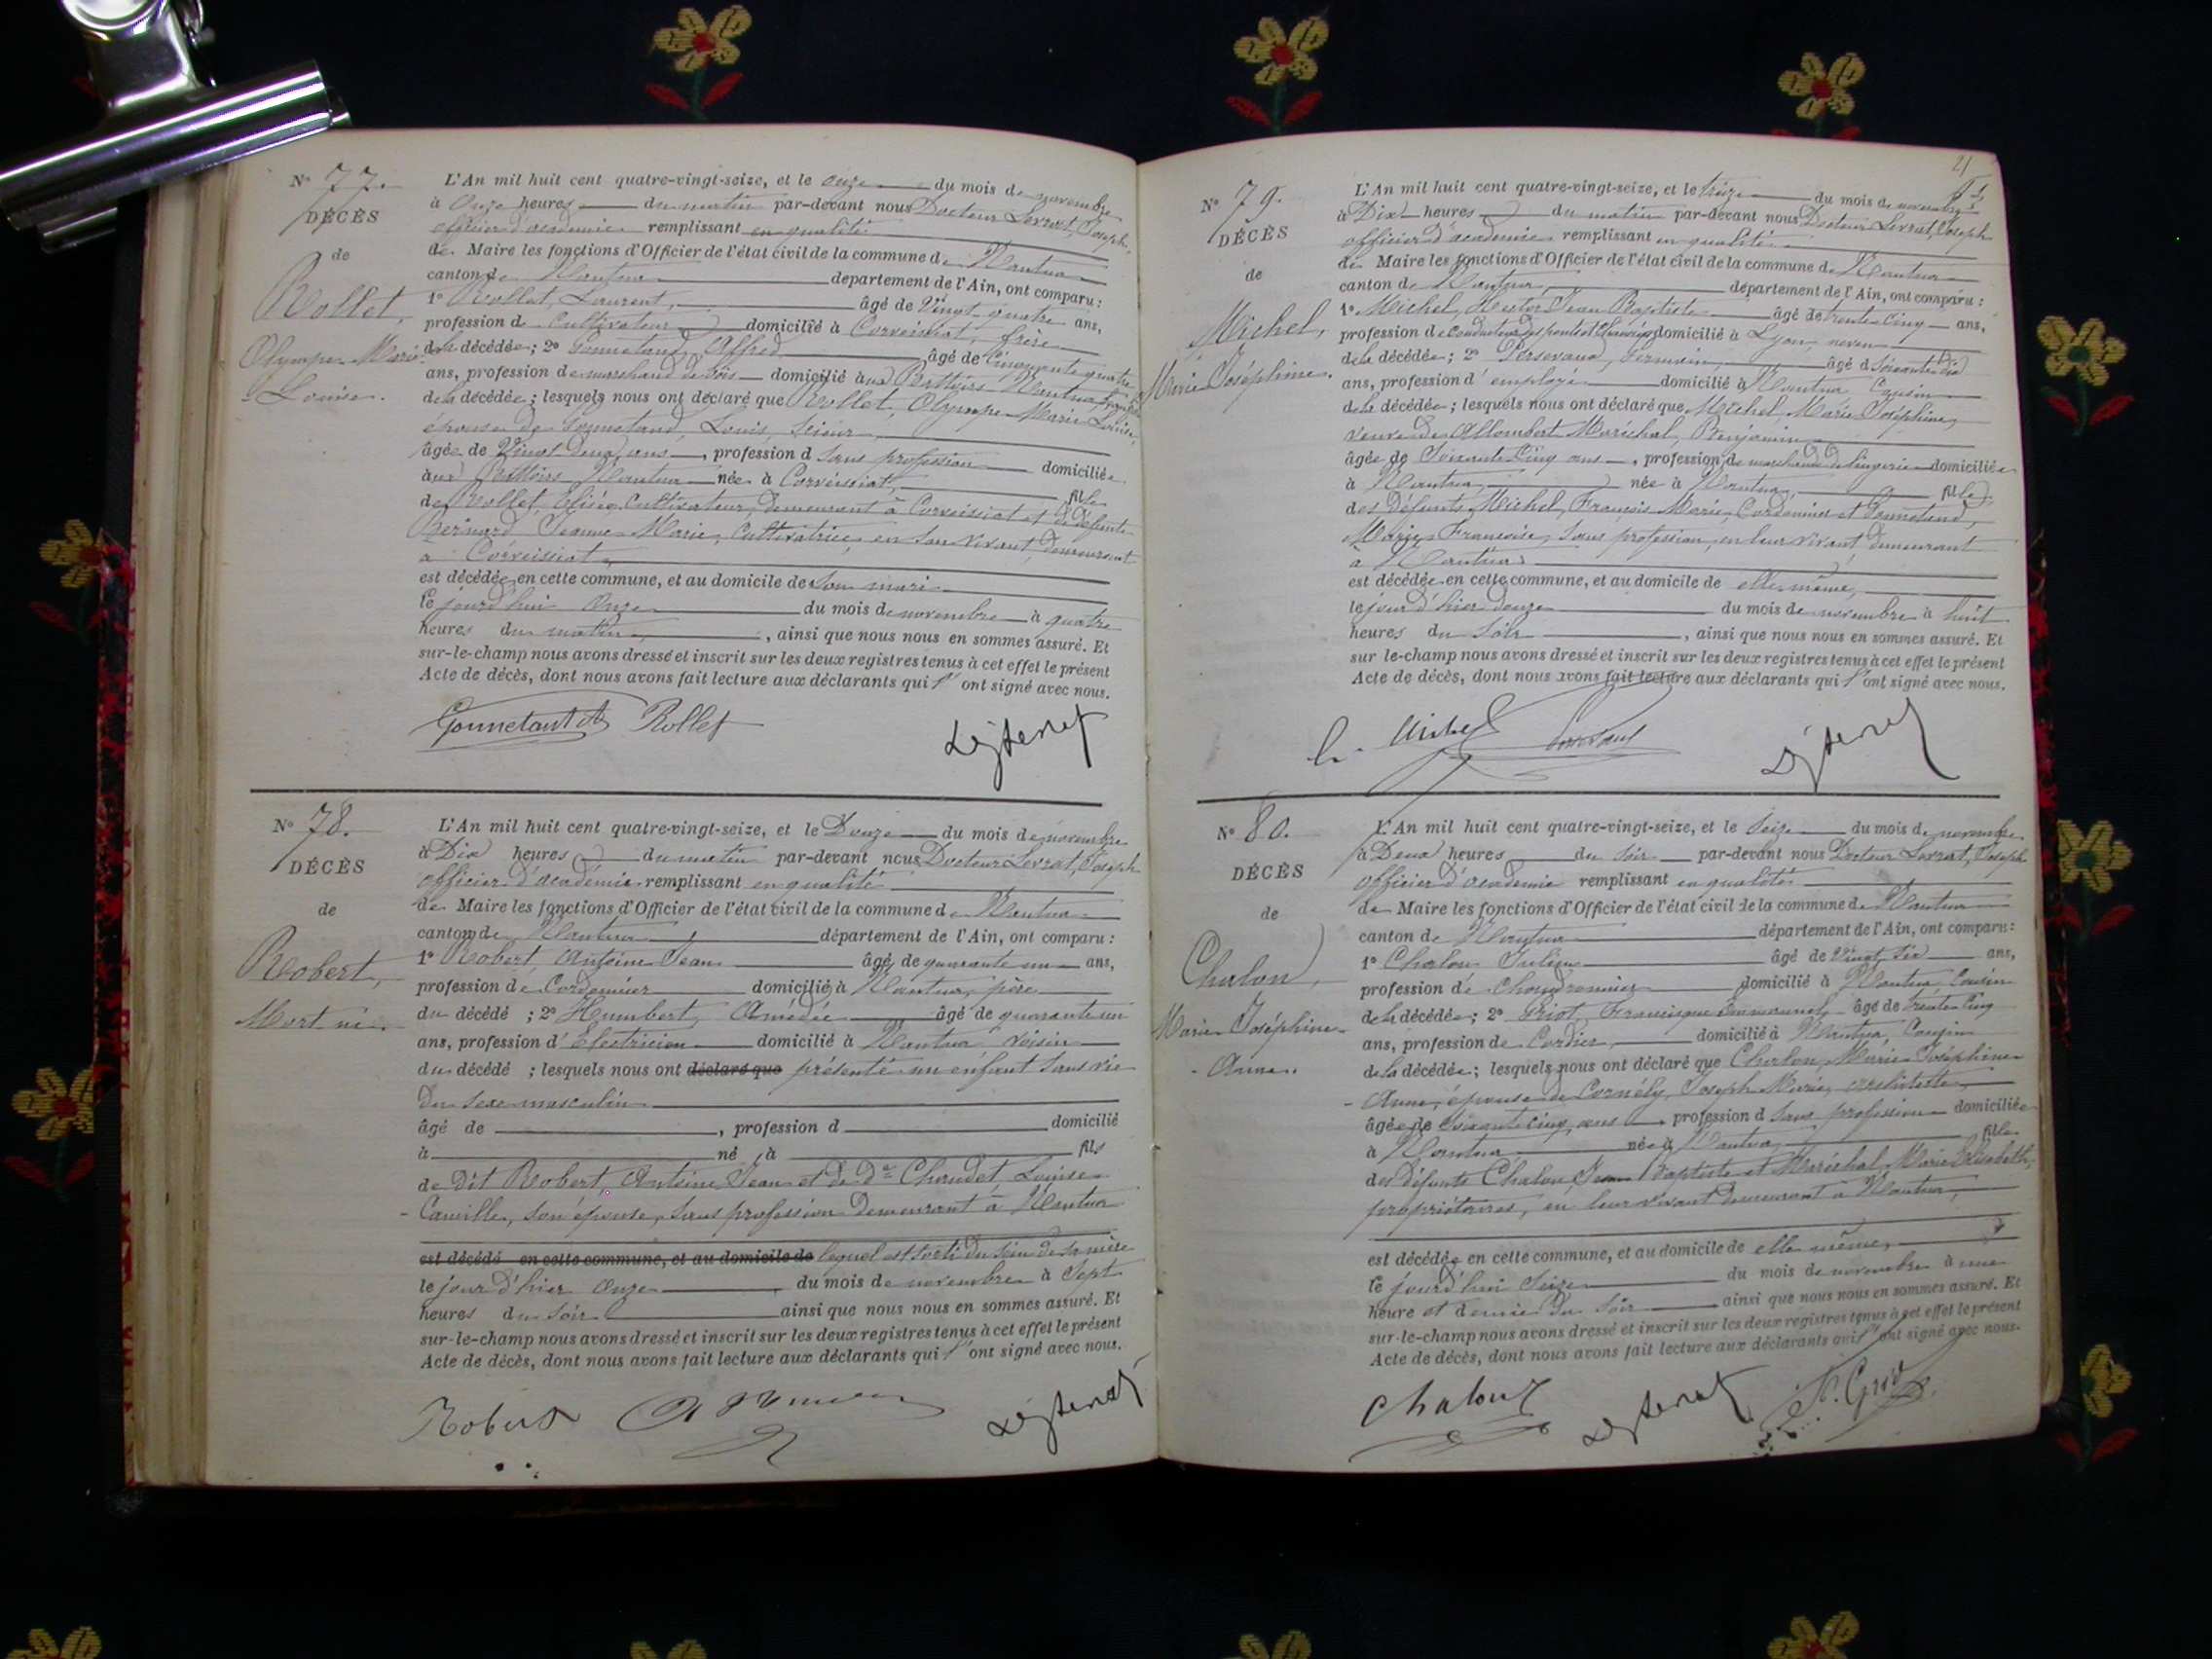 N° 77.
DÉCÈS
de
Rollet,
Olympe-Marie-
Louise.
L'An mil huit cent quatre-vingt-seize, et le onze du mois de novembre
à Onze heures du matin par-devant nous Docteur Levrat, Joseph,
officier d'académie remplissant en qualité
de Maire les fonctions d'Officier de l'état civil de la commune de Nantua
canton de Nantua département de l'Ain, ont comparu :
1° Rollet, Laurent, âgé de Vingt-quatre ans,
profession de Cultivateur domicilié à Corveissiat, frère
de la décédée ; 2° Gonnetand, Alfred âgé de Cinquante quatre
ans, profession de marchand de bois domicilié aux Battoirs Nantua,
de la décédée ; lesquels nous ont déclaré que Rollet, Olympe-Marie-Louise,
épouse de Gonnetand, Louis, Scieur
âgée de Vingt deux ans, profession d sans profession domiciliée
aux Battoirs Nantua née à Corveissiat, fille
de Rollet, Elisée, Cultivateur, demeurant à Corveissiat et de défunte
Bernard Jeanne-Marie, Cultivatrice, en son vivant, demeurant
à Corveissiat
est décédée en cette commune, et au domicile de son mari
le jourd'hui Onze du mois de novembre à quatre
heures du matin, ainsi que nous nous en sommes assuré. Et
sur-le-champ nous avons dressé et inscrit sur les deux registres tenus à cet effet le présent
Acte de décès, dont nous avons fait lecture aux déclarants qui l'ont signé avec nous.
Gonnetand A Rollet
N° 78.
DÉCÈS
de
Robert,
Mort né.
L'An mil huit cent quatre-vingt-seize, et le Douze du mois de novembre
à Dix heures du matin par-devant nous Docteur Levrat, Joseph
officier d'académie remplissant en qualité
de Maire les fonctions d'Officier de l'état civil de la commune de Nantua
canton de Nantua département de l'Ain, ont comparu :
1° Robert, Antoine Jean âgé de quarante un ans,
profession de Cordonnier domicilié à Nantua, père
du décédé ; 2° Humbert, Amédée âgé de quarante un
ans, profession d'Electricien domicilié à Nantua voisin
du décédé ; lesquels nous ont déclaré que présenté un enfant sans vie
du sexe masculin
âgé de , profession d domicilié
à né à fils
de dit Robert, Antoine Jean et de De Chaudet, Louise-
Camille, son épouse, sans profession demeurant à Nantua
est décédé en cette commune, et au domicile de lequel est sorti du sein de sa mère
le jour d'hier onze du mois de novembre à Sept
heures du soir ainsi que nous nous en sommes assuré. Et
sur-le-champ nous avons dressé et inscrit sur les deux registres tenus à cet effet le présent
Acte de décès, dont nous avons fait lecture aux déclarants qui l'ont signé avec nous.
Robert
21
N° 79.
DÉCÈS
de
Michel,
Marie Joséphine.
L'An mil huit cent quatre-vingt-seize, et le treize du mois de novembre
à Dix heures du matin par-devant nous Docteur Levrat, Joseph
officier d'académie remplissant en qualité
de Maire les fonctions d'Officier de l'état civil de la commune de Nantua
canton de Nantua, département de l'Ain, ont comparu :
1° Michel, Hector Jean Baptiste âgé de trente Cinq ans,
profession de Conducteur des ponts et Chaussées domicilié à Lyon, neveu
de la décédée ; 2° Persevaud, Firmin, âgé de Soixante Dix
ans, profession d'employé domicilié à Nantua, Cousin
de la décédée ; lesquels nous ont déclaré que Michel, Marie Joséphine,
veuve de Allombert Maréchal, Benjamin
âgée de Soixante Cinq ans, profession de marchande de lingerie domiciliée
à Nantua, née à Nantua, fille
des défunts Michel, François Marie, Cordonnier et Gonnetand,
Marie Françoise, sans profession, en leur vivant demeurant
à Nantua
est décédée en cette commune, et au domicile de elle même,
le jour d'hier douze du mois de novembre à huit
heures du soir, ainsi que nous nous en sommes assuré. Et
sur le-champ nous avons dressé et inscrit sur les deux registres tenus à cet effet le présent
Acte de décès, dont nous avons fait lecture aux déclarants qui l'ont signé avec nous.
h. Michel
N° 80.
DÉCÈS
de
Chalon,
Marie-Joséphine-
Anna.
L'An mil huit cent quatre-vingt-seize, et le Seize du mois de novembre
à Deux heures du soir par-devant nous Docteur Levrat, Joseph
officier d'académie remplissant en qualité
de Maire les fonctions d'Officier de l'état civil de la commune de Nantua
canton de Nantua département de l'Ain, ont comparu :
1° Chalon Julien âgé de Vingt Six ans,
profession de Chaudronnier domicilié à Nantua, Cousin
de la décédée ; 2° Griot, Francisque Emmanuel âgé de trente Cinq
ans, profession de Cordier, domicilié à Nantua, Cousin
de la décédée ; lesquels nous ont déclaré que Chalon, Marie-Joséphine-
Anna, épouse de Cornély, Joseph Marie, architecte,
âgée de Soixante cinq ans, profession d sans profession domiciliée
à Nantua, née à Nantua, fille
des défunts Chalon, Jean Baptiste et Maréchal, Marie Elisabeth,
propriétaires, en leur vivant demeurant à Nantua,
est décédée en cette commune, et au domicile de elle même,
le jourd'hui Seize du mois de novembre à une
heure et demie du soir ainsi que nous nous en sommes assuré. Et
sur-le-champ nous avons dressé et inscrit sur les deux registres tenus à cet effet le présent
Acte de décès, dont nous avons fait lecture aux déclarants qui l'ont signé avec nous.
Chalon J